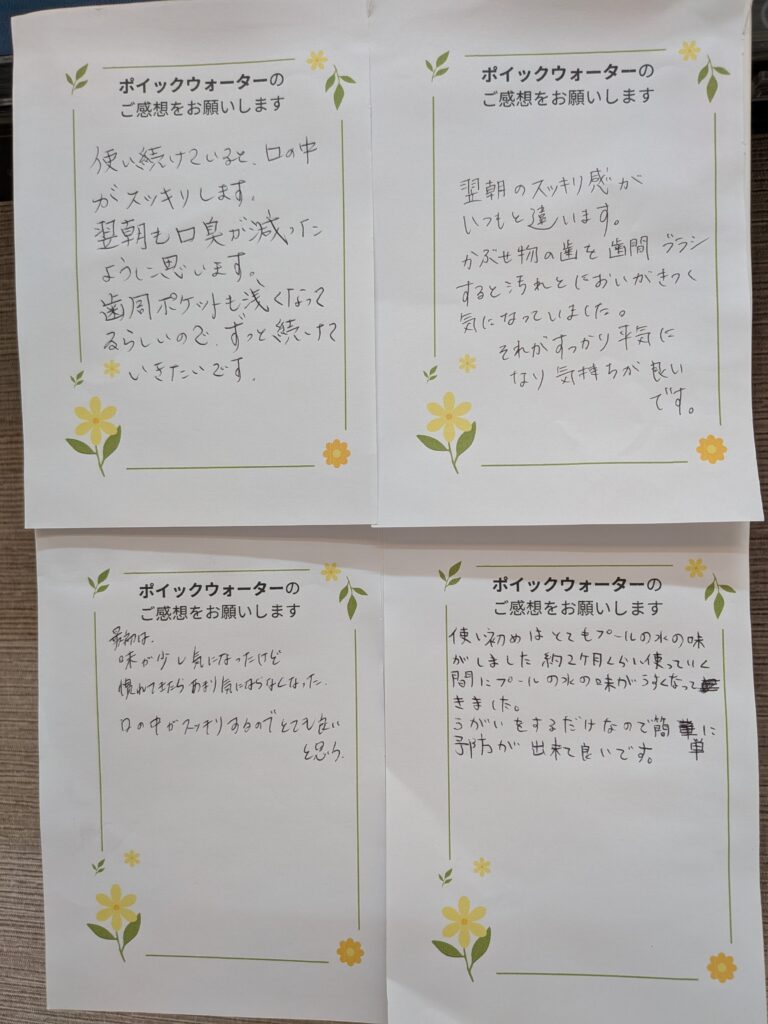 ポイックウォーターの
ご感想をお願いします
使い続けていると、口の中
がスッキリします。
翌朝も口臭が減った
ように思います。
歯周ポケットも浅くなって
るらしいので、ずっと続けて
いきたいです。
ポイックウォーターの
ご感想をお願いします
翌朝のスッキリ感が
いつもと違います。
かぶせ物の歯を歯間ブラシ
すると汚れとにおいがきつく
気になっていました。
それがすっかり平気に
なり気持ちが良い
です。
ポイックウォーターの
ご感想をお願いします
最初は、
味が少し気になったけど
慣れてきたらあまり気にならなくなった。
口の中がスッキリするのでとても良い
と思う。
ポイックウォーターの
ご感想をお願いします
使い初めはとてもプールの水の味
がしました 約2ケ月くらい使っていく
間にプールの水の味がうすくなって
きました。
うがいをするだけなので簡単に
予防が出来て良いです。